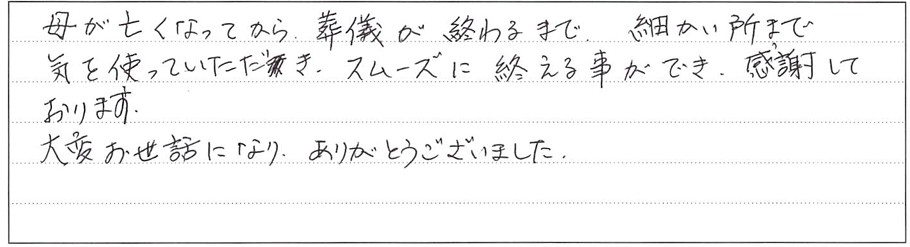 母が亡くなってから、葬儀が終わるまで、細かい所まで
気を使っていただき、スムーズに終える事ができ、感謝して
おります。
大変お世話になり、ありがとうございました。